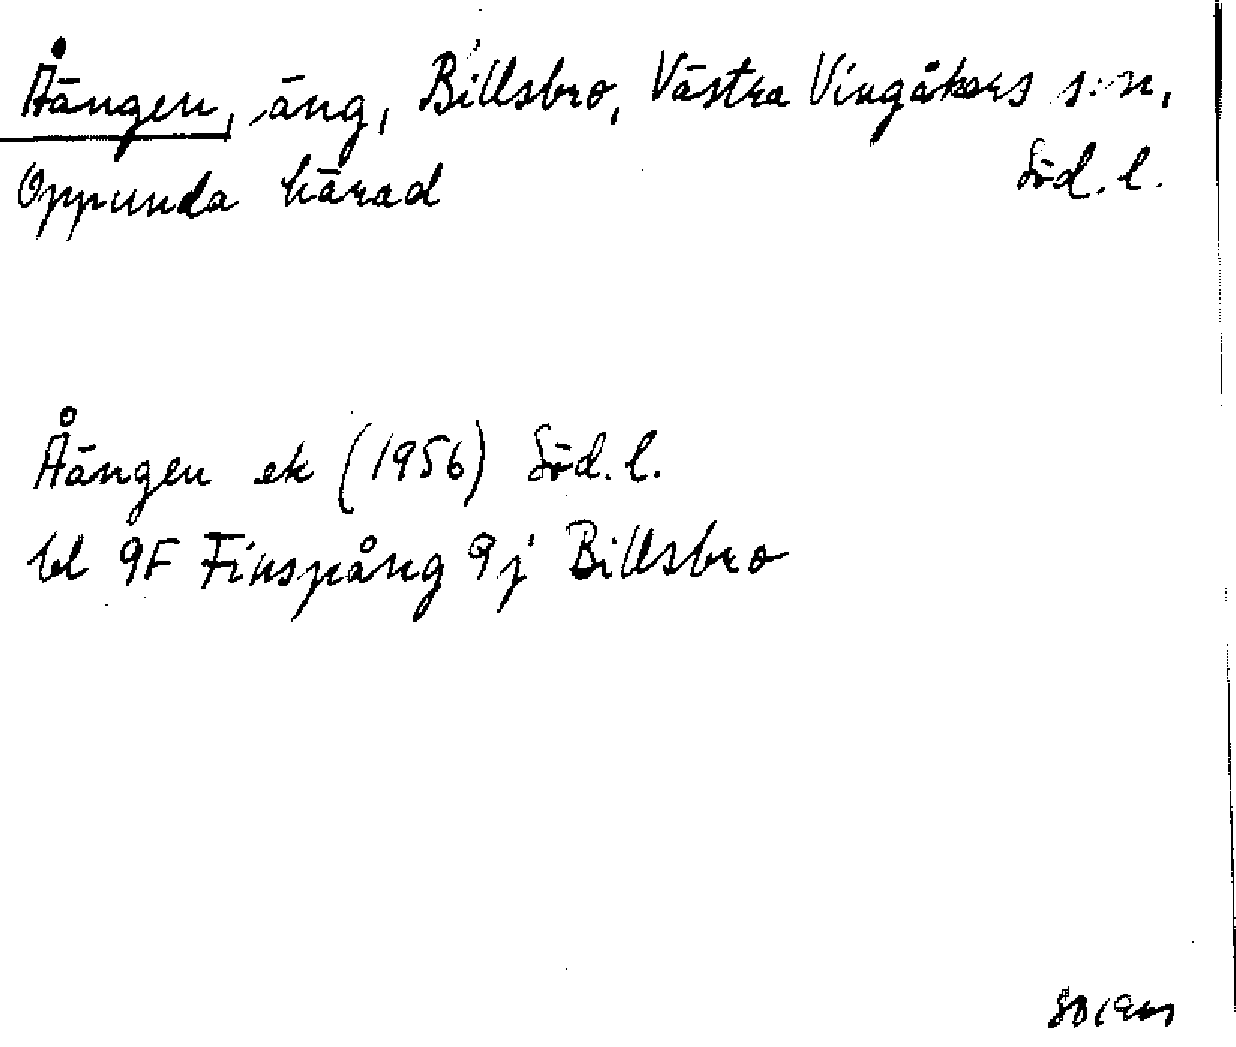 Åängen, äng, Billsbro, Västra Vingåkers s:n,
Oppunda härad Söd. l.
Åängen ek (1956) Söd. l.
bl 9F Finspång 9j Billsbro